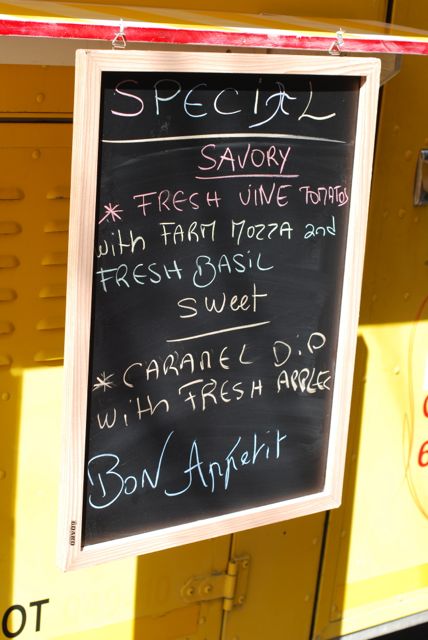 SPECIAL
SAVORY
* FRESH VINE TOMATOS
with FARM MOZZA and
FRESH BASIL
sweet
* CARAMEL DIP
with FRESH APPLES
BON Appétit
BOARD
OT